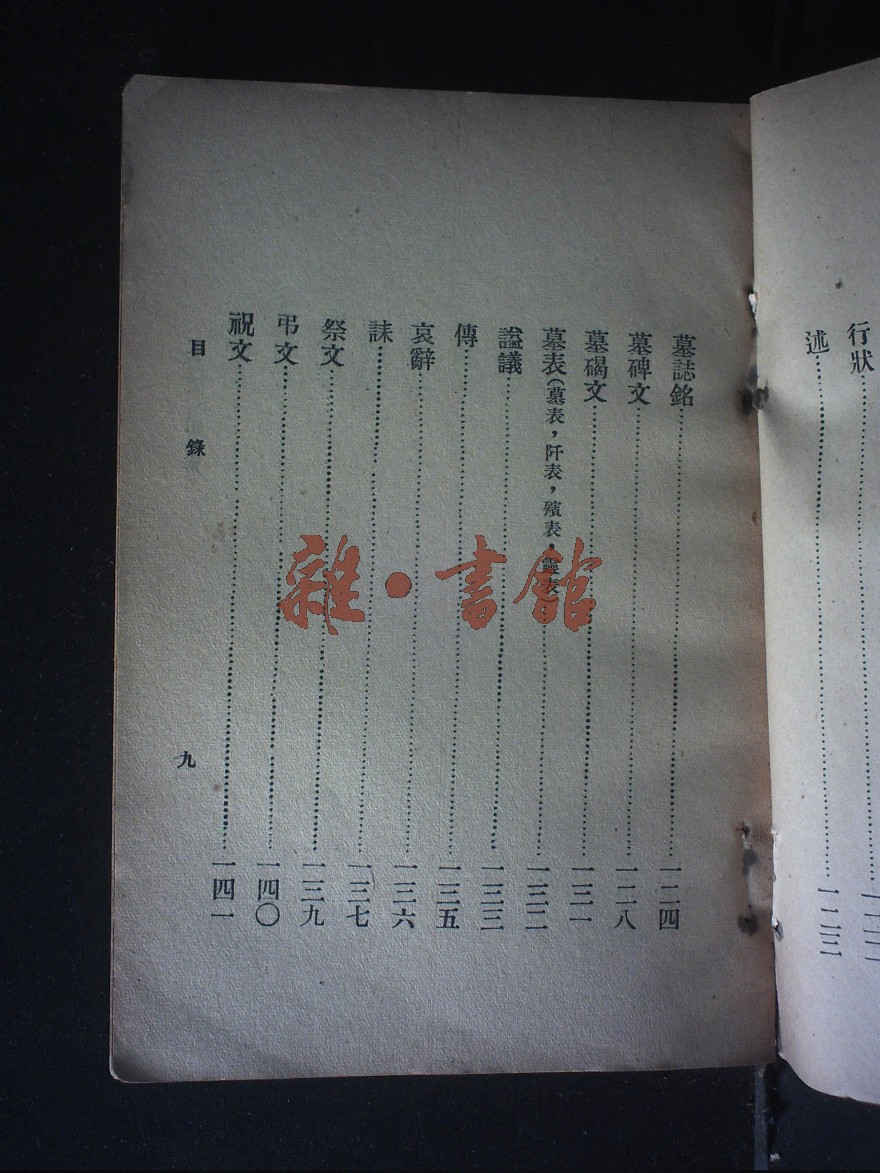 行狀
述……一二三
墓誌銘……一二四
墓碑文……一二八
墓碣文……一三一
墓表(墓表，阡表，殯表，靈表……一三二
謚議……一三三
傳……一三五
哀辭……一三六
誄……一三七
祭文……一三九
弔文……一四〇
祝文……一四一
目錄
九
雜·書館